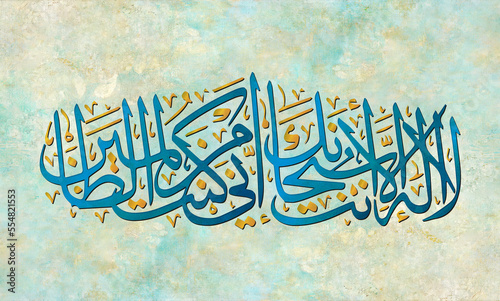 لا إله إلا أنت سبحانك إني كنت من الظالمين
Adobe Stock | #554821553